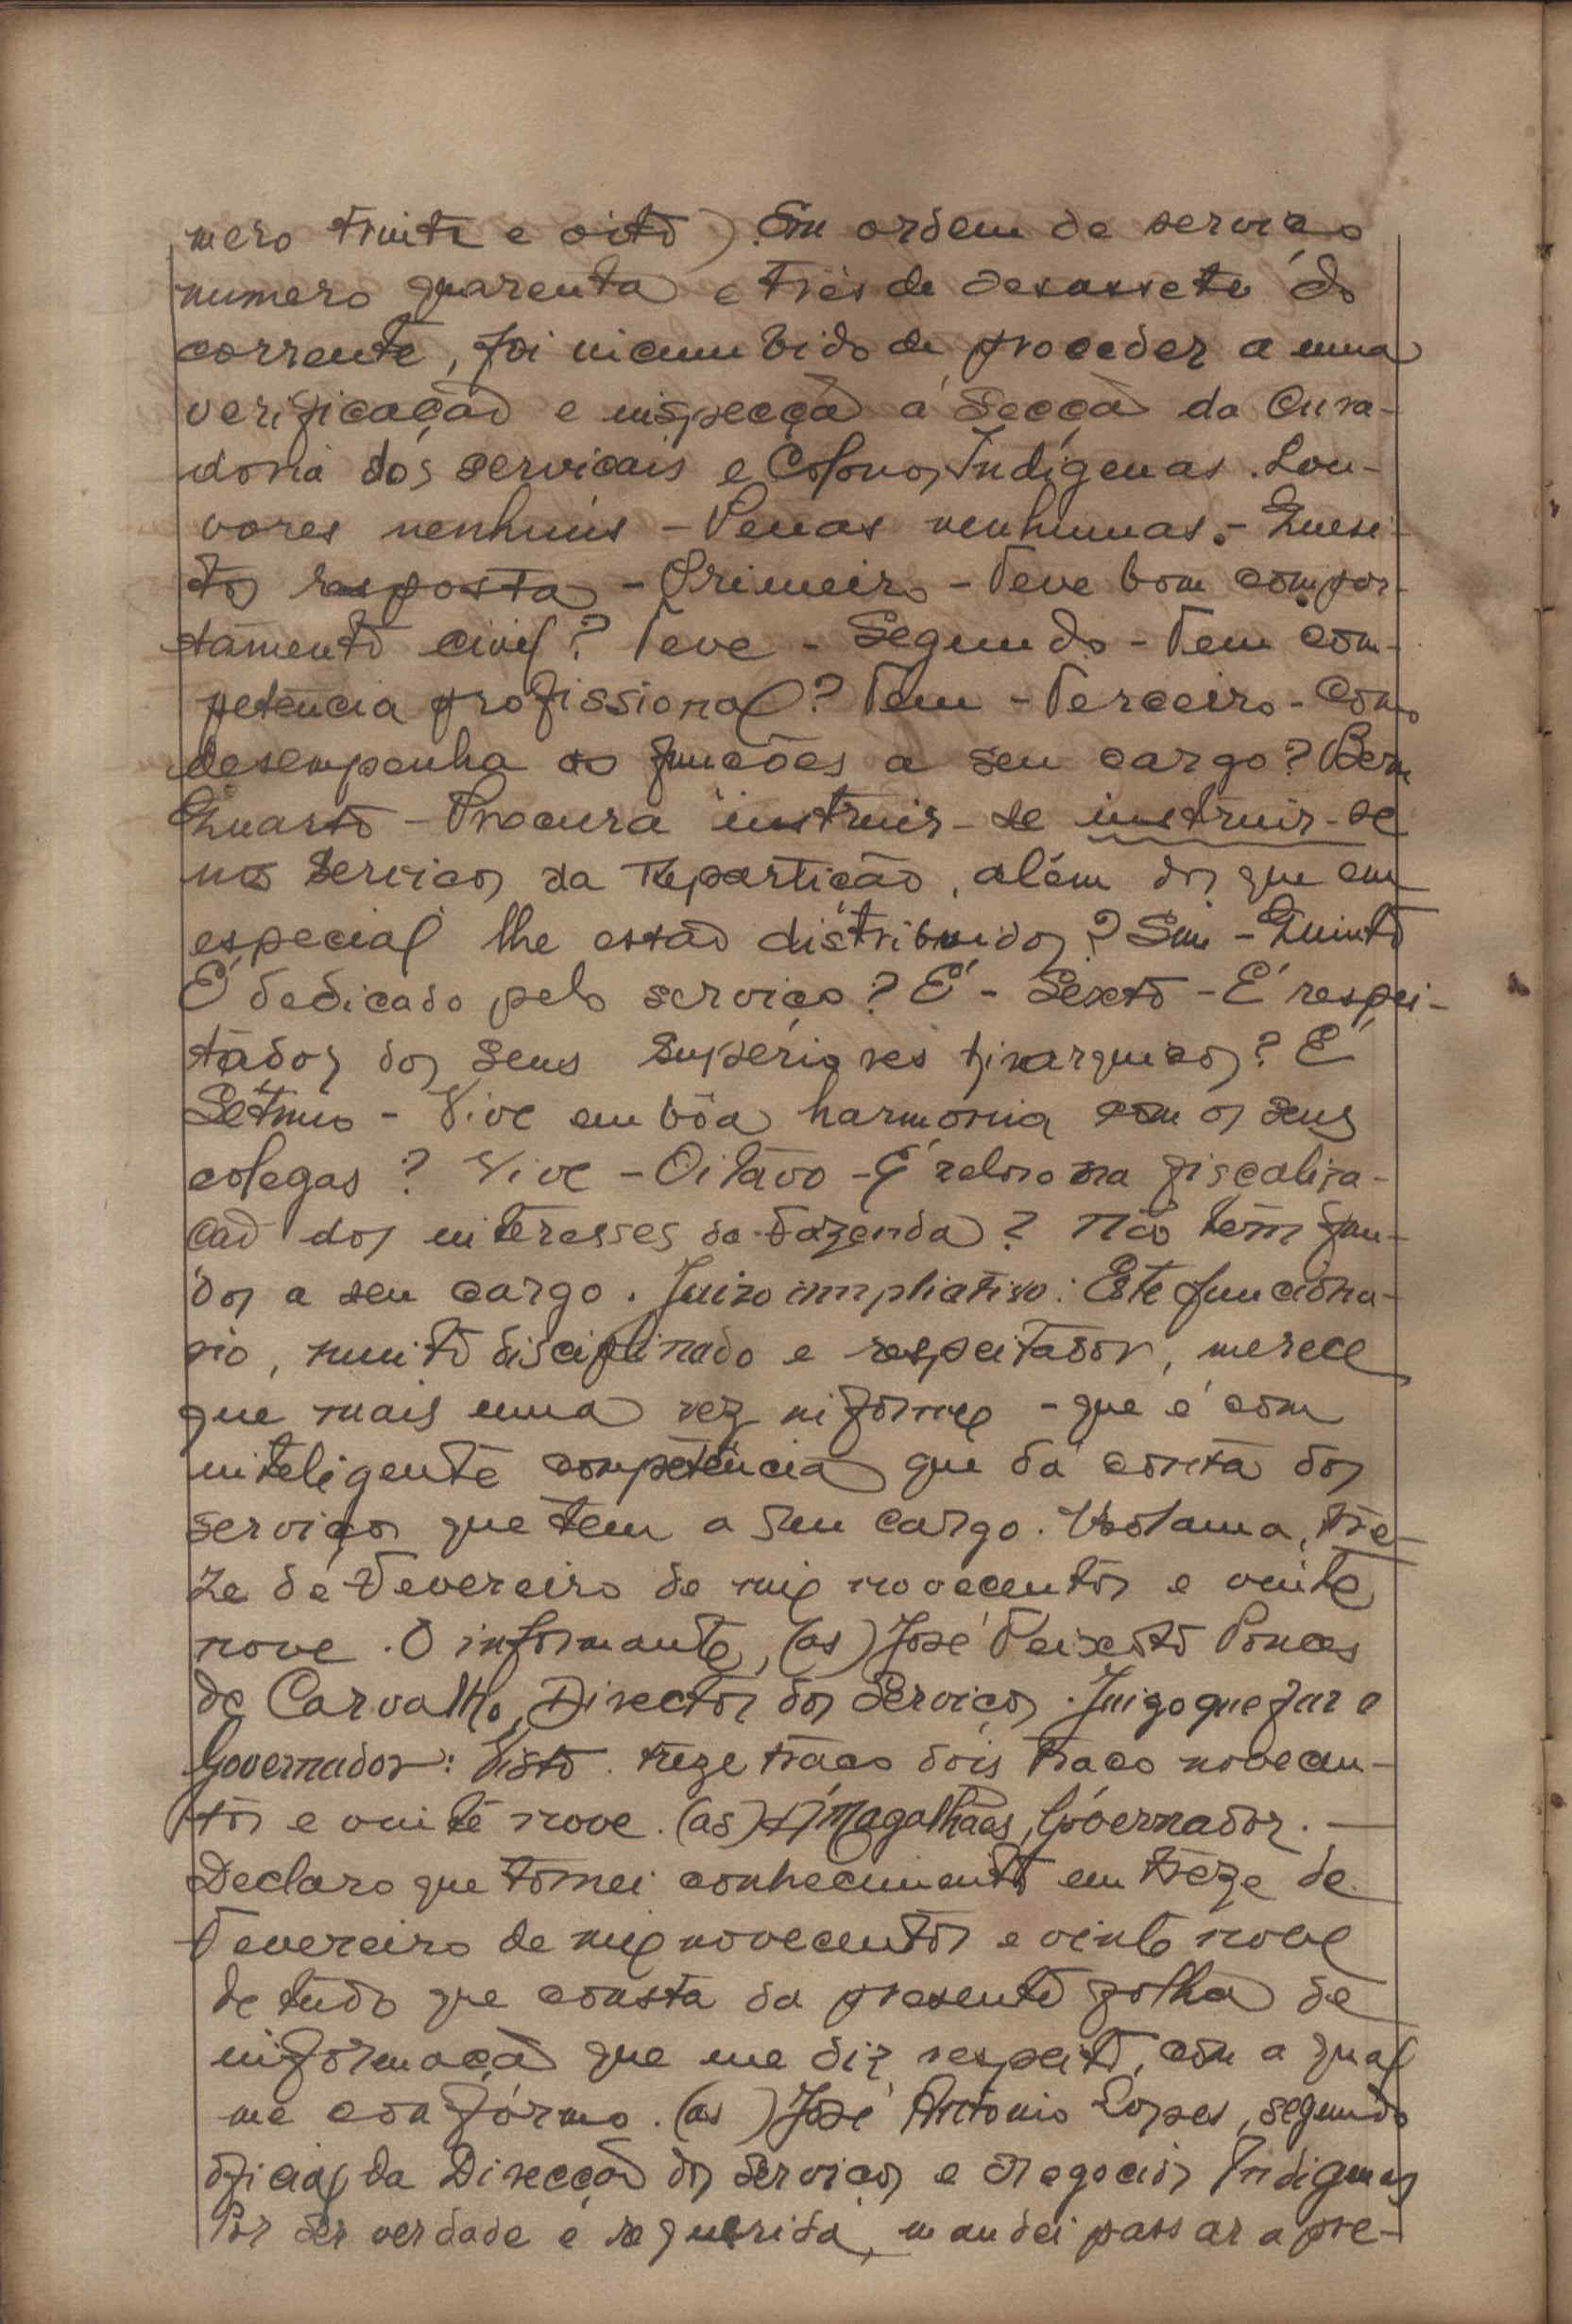 mero trinta e oito). Em ordem de serviço
numero quarenta e três de desassete do
corrente, foi incumbido de proceder a uma
verificação e inspecçã á Secçã da Cura-
doria dos serviçais e Colonos Indígenas. Lou-
vores nenhuns - Penas nenhumas. - Quesi-
tos resposta - Primeiro - Teve bom compor-
tamento civil? Teve - Segundo - Tem com-
petencia profissional? Tem - Terceiro - Como
desempenha as funções a seu cargo? Bem
Quarto - Procura instruir-se instruir-se
nos serviços da Repartição, além dos que em
especial lhe estão distribuidos? Sim - Quinto
É dedicado pelo serviço? É - Sexto - É respei-
tados dos seus superiores hirarquicos? É
Setimo - Vive em bôa harmonia com os seus
colegas? Vive - Oitavo - É zeloso na fiscaliza-
ção dos interesses da Fazenda? Não tem fun-
dos a seu cargo. Juizo ampliativo: Este funciona-
rio, muito disciplinado e respeitador, merece
que mais uma vez informe - que é com
inteligente competência que dá conta dos
serviços que tem a seu cargo. Bolama, tre-
ze de Fevereiro de mil novecentos e vinte
nove. O informante, (as) José Peixoto Ponces
de Carvalho, Director dos Serviços. Juizo que faz o
Governador: Visto. treze traço dois traço novecen-
tos e vinte nove. (as) Magalhães, Governador. —
Declaro que tomei conhecimento em treze de
Fevereiro de mil novecentos e vinte nove
de tudo que consta da presente folha de
informaçã que me diz respeito, com a qual
me confórmo. (as) José Antonio Lopes, segundo
oficial da Direcção dos Serviços e Negocios Indigenas
Por ser verdade e requerida, mandei passar a pre-